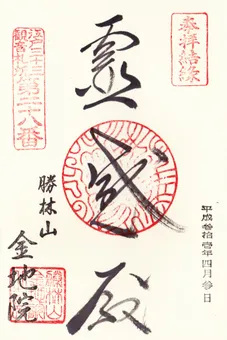 奉拝結縁
平成参拾壱年四月参日
霊感殿
江戸三十三
観音札所
第二十八番
勝林山
金地院